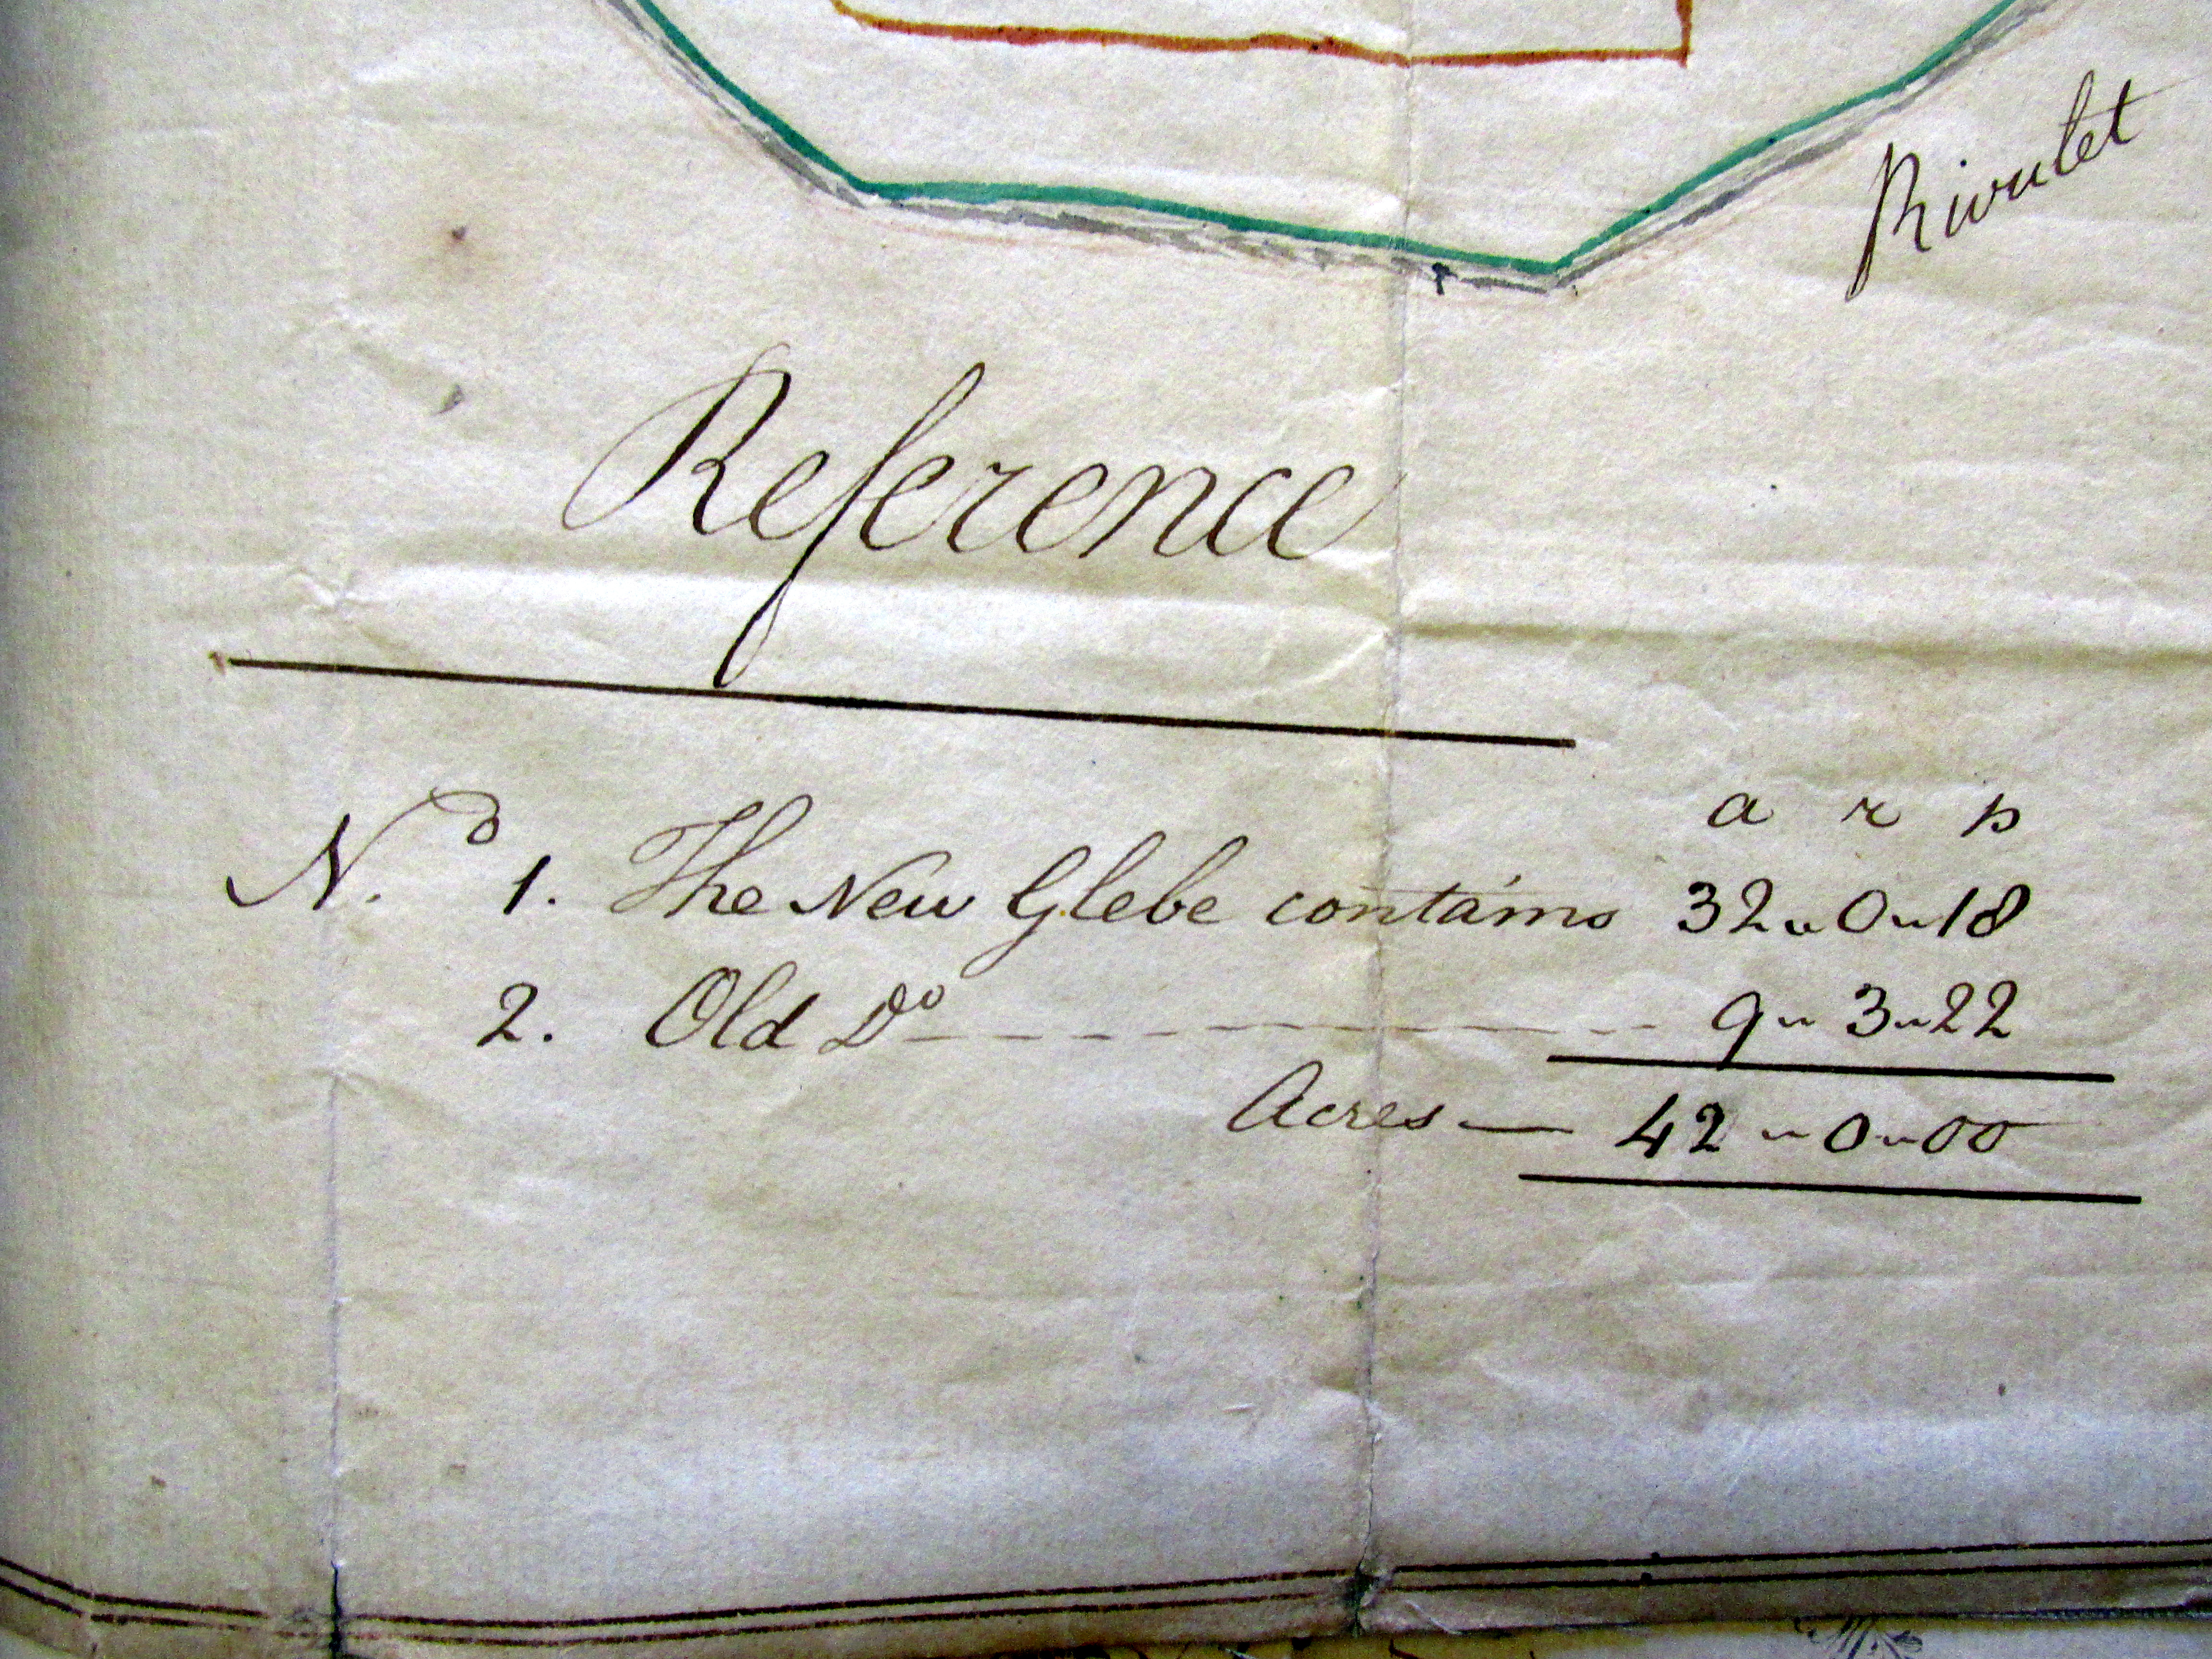 Rivulet
Reference
a r p
No. 1. The New Glebe contains 32 " 0 " 18
2. Old Do ---------- 9 " 3 " 22
Acres — 42 " 0 " 00